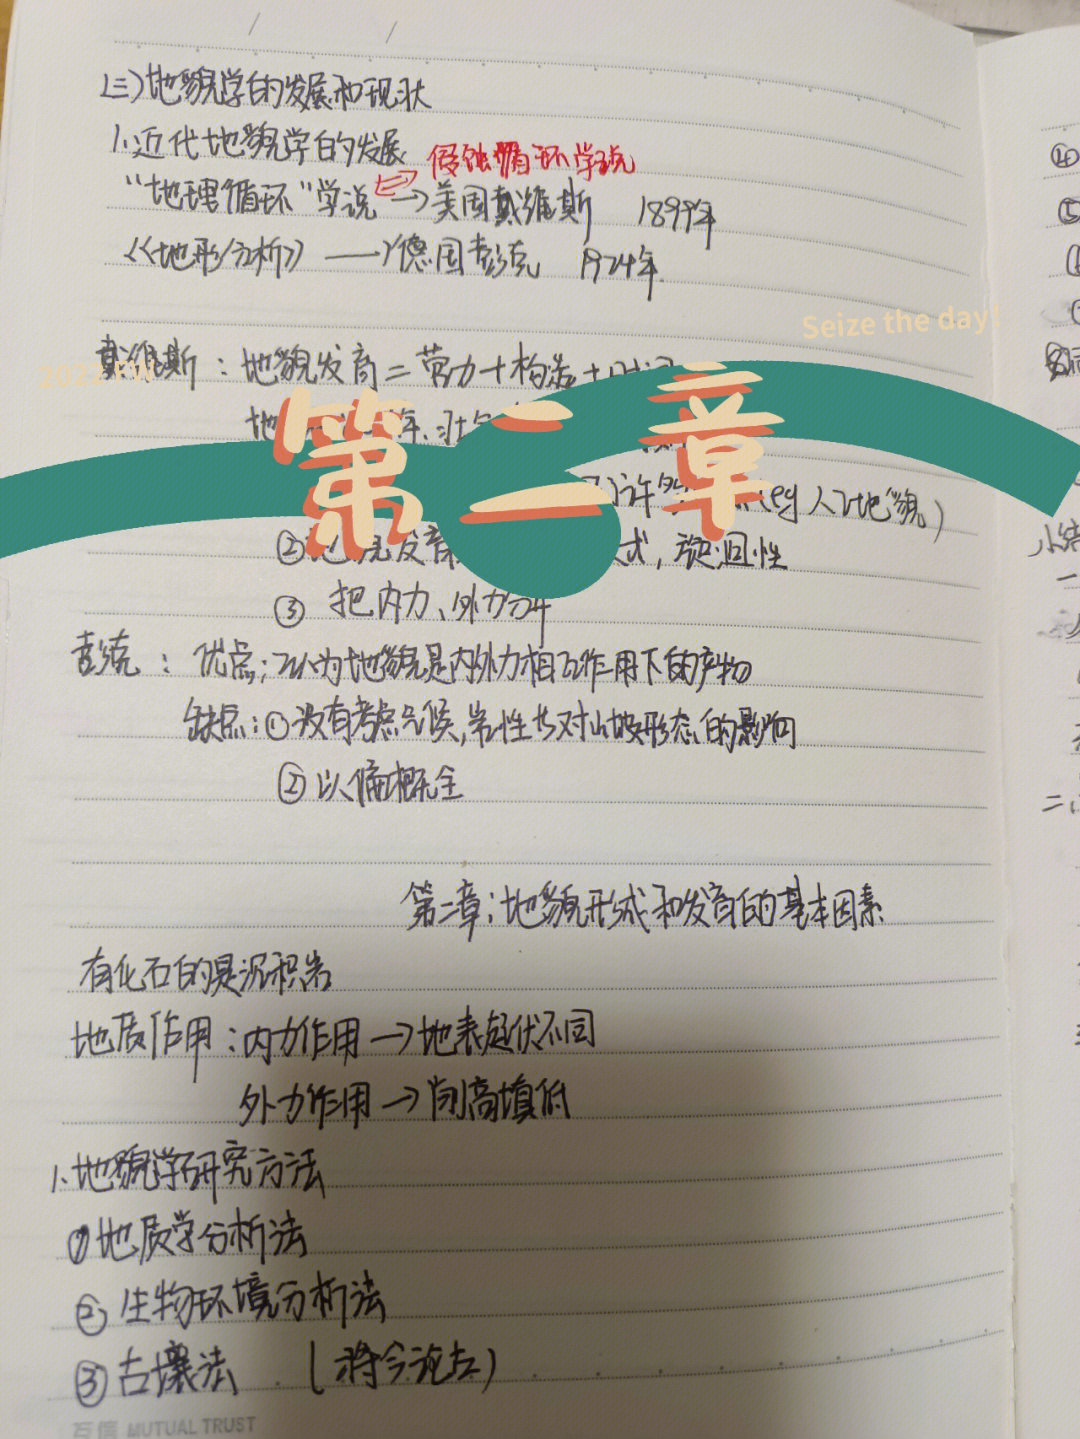 (三)地貌学的发展和现状
1.近代地貌学的发展
侵蚀循环学说
“地理循环”学说 → 美国戴维斯 1899年
《地形分析》 → 德国彭克 1924年
Seize the day!
戴维斯：地貌发育=营力+构造+时间
2022
地 年、壮年
第二章
许 (eg 人工地貌)
②地貌发育 式，旋回性
③ 把内力、外力分开
彭克：优点：认为地貌是内外力相互作用下的产物
缺点：①没有考虑气候,岩性长对山坡形态的影响
②以偏概全
第二章：地貌形成和发育的基本因素
有化石的是沉积岩
地质作用：内力作用→地表起伏不同
外力作用→削高填低
1.地貌学研究方法
①地质学分析法
②生物环境分析法
③古壤法 (将今论古)
互信 MUTUAL TRUST
④
⑤
小结
一
二、